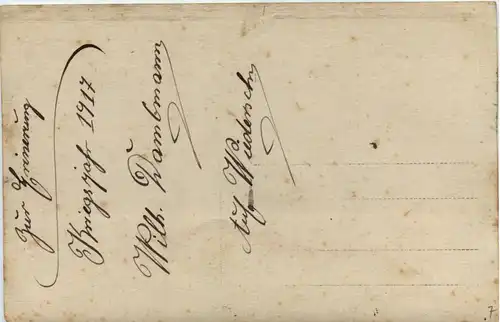 Zur Erinerung
Kriegsjahr 1917
Wilh. Dambmann
Auf Wiedersehn
7